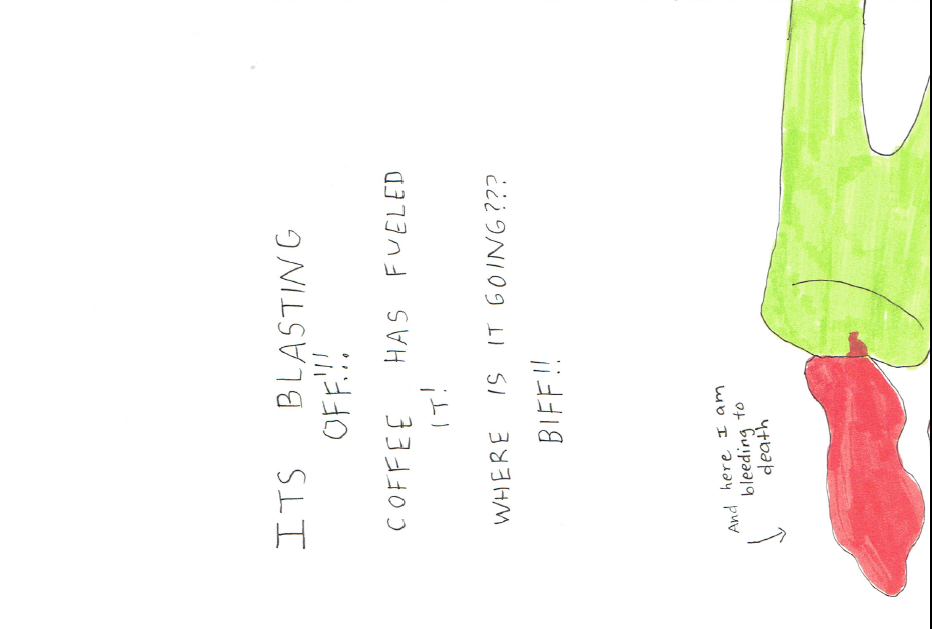 ITS BLASTING
OFF!!!
COFFEE HAS FUELED
IT!
WHERE IS IT GOING???
BIFF!!
And here I am
bleeding to
death